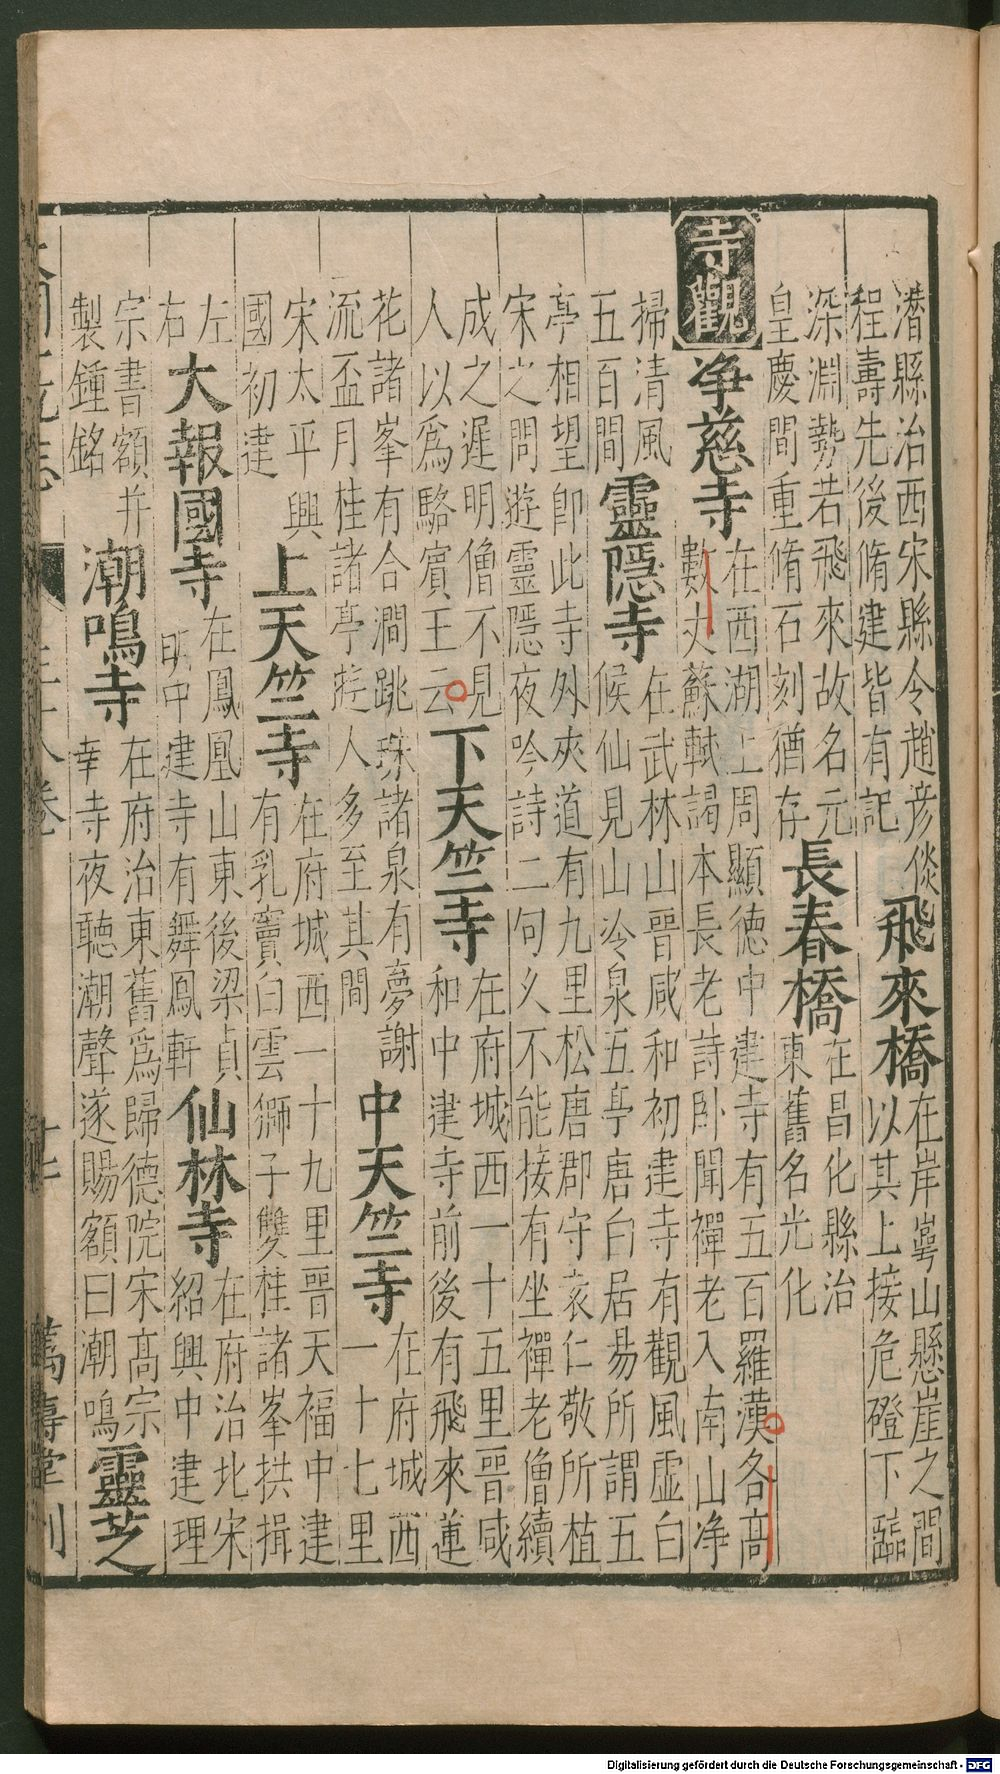 潛縣治西宋縣令趙彦倓
程壽先後脩建皆有記
飛來橋
在岸崿山懸崖之間
以其上接危磴下臨
深淵勢若飛來故名元
皇慶間重脩石刻猶存
長春橋
在昌化縣治
東舊名光化
寺觀
净慈寺
在西湖上周顯德中建寺有五百羅漢各高
數丈蘇軾謁本長老詩臥聞禪老入南山净
掃清風
五百間
靈隱寺
在武林山晉咸和初建寺有觀風虛白
候仙見山冷泉五亭唐白居易所謂五
亭相望卽此寺外夾道有九里松唐郡守袁仁敬所植
宋之問遊靈隱夜吟詩二句乆不能接有坐禪老僧續
成之遲明僧不見
人以爲駱賓王云
下天竺寺
在府城西一十五里晉咸
和中建寺前後有飛來蓮
花諸峯有合澗跳珠諸泉有夢謝
流盃月桂諸亭遊人多至其間
中天竺寺
在府城西
一十七里
宋太平興
國初建
上天竺寺
在府城西一十九里晉天福中建
有乳竇白雲獅子雙桂諸峯拱揖
左
右
大報國寺
在鳳凰山東後梁貞
明中建寺有舞鳳軒
仙林寺
在府治北宋
紹興中建理
宗書額并
製鍾銘
潮鳴寺
在府治東舊爲歸德院宋高宗
幸寺夜聽潮聲遂賜額曰潮鳴
靈芝
萬壽堂刊
Digitalisierung gefördert durch die Deutsche Forschungsgemeinschaft - DFG